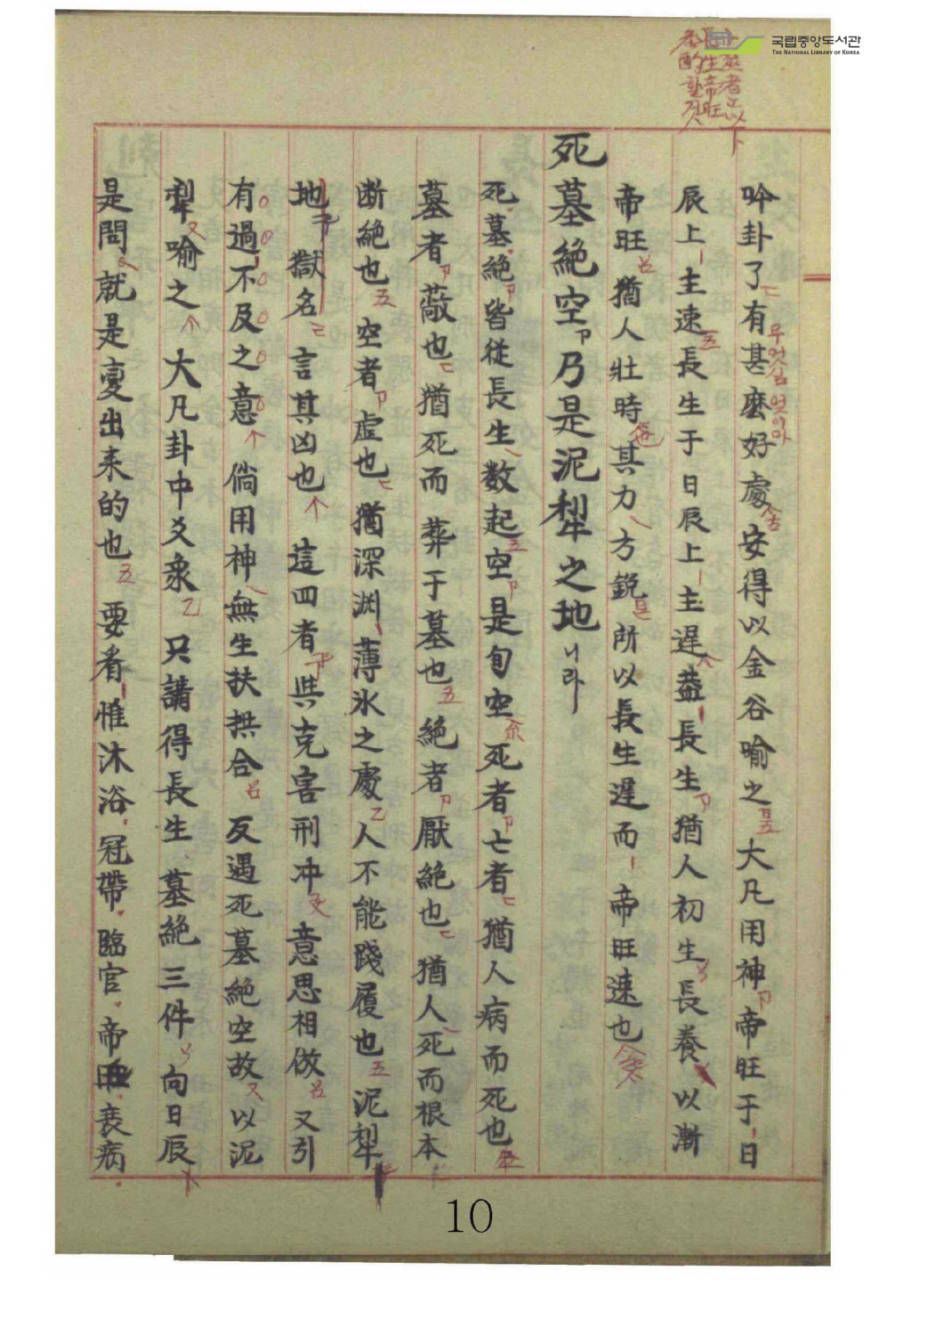 국립중앙도서관
THE NATIONAL LIBRARY OF KOREA
吟卦了有甚麽好處安得以金谷喻之大凡用神帝旺于日
辰上主速長生于日辰上主遲蓋長生猶人初生長養以漸
帝旺猶人壯時其力方銳所以長生遲而帝旺速也
死墓絶空乃是泥犂之地니라
死墓絶皆從長生数起空是旬空死者亡者猶人病而死也
墓者蔽也猶死而葬于墓也絶者厭絶也猶人死而根本
断絶也空者虛也猶深渊薄氷之處人不能踐履也泥犂
地獄名言其凶也這四者與克害刑冲意思相倣又引
有過不及之意倘用神無生扶拱合反遇死墓絶空故以泥
犂喻之大凡卦中爻象只講得長生墓絶三件向日辰
是問就是變出来的也要看惟沐浴冠帶臨官帝旺衰病
10